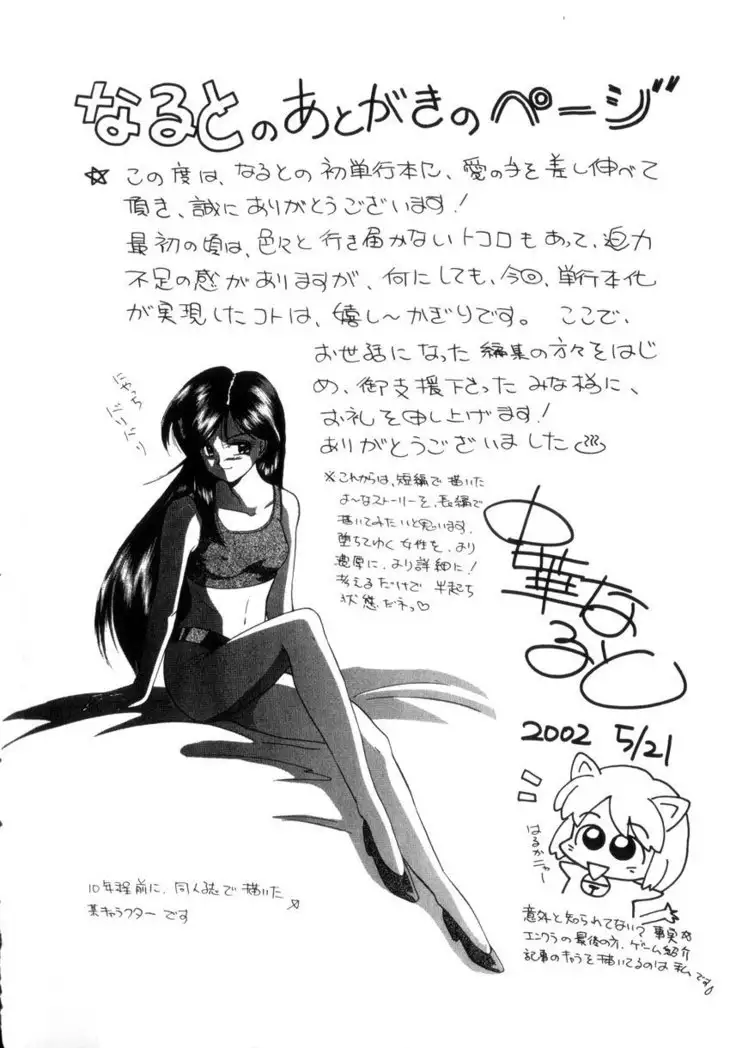 なるとのあとがきのページ
☆ この度は、なるとの初単行本に、愛の手を差し伸べて
頂き、誠にありがとうございます!
最初の頃は、色々と行き届かないトコロもあって、迫力
不足の感がありますが、何にしても、今回、単行本化
が実現したコトは、嬉し〜かぎりです。 ここで、
お世話になった 編集の方々をはじ
め、御支援下さった みな様に、
お礼を申し上げます!
ありがとうございました
にゃっち
ドリドリ
※これからは、短編で描いた
よ〜なストーリーを、長編で
描いてみたいと思います。
堕ちてゆく女性を、より
濃厚に、より詳細に!
考えるだけで 半起ち
状態だネっ♡
中華なると
2002 5/21
はるかニャー
10年程前に、同人誌で描いた
某キャラクターです
意外と知られてない? 事実☆
エンクラの最後の方、ゲーム紹介
記事のキャラを描いてるのは 私です